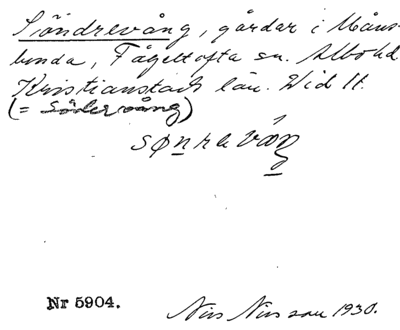 Söndrevång, gårdar i Måns-
lunda, Fågeltofta sn. Albo hd
Kristianstads län. Vid 11.
(= Södervång)
sønravåŋ
Nr 5904.
Nils Nilsson 1930.